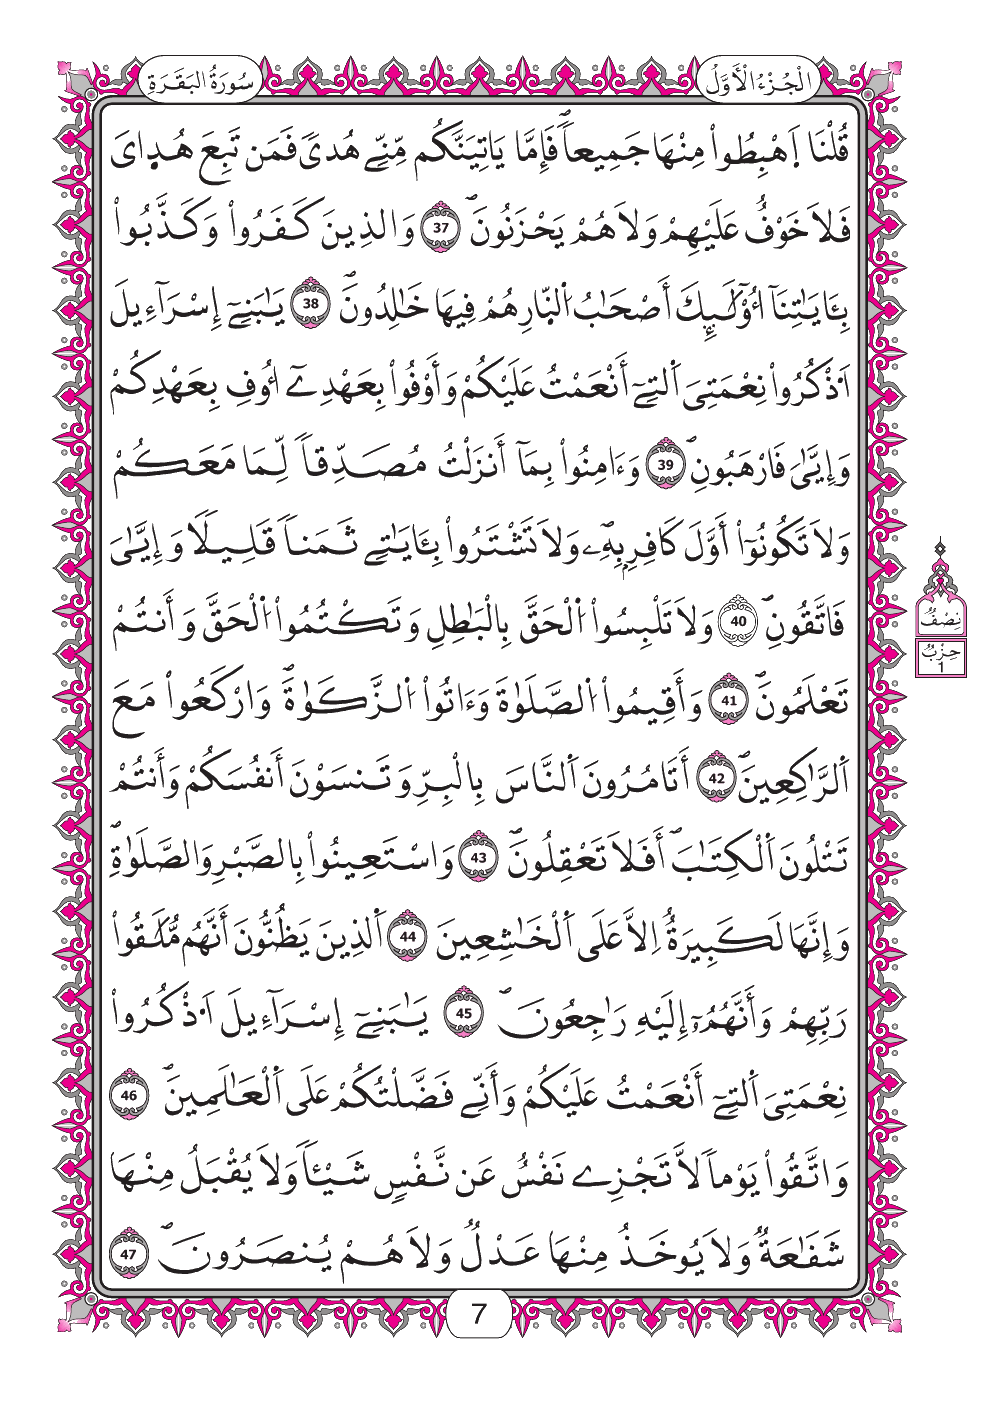 الْجُزْءُ الْأَوَّلُ
سُورَةُ الْبَقَرَةِ
قُلْنَا اَهْبِطُواْ مِنْهَا جَمِيعاٗۖ فَإِمَّا يَاتِيَنَّكُم مِّنِّے هُديٗ فَمَن تَبِعَ هُد۪ايَ
فَلَا خَوْفٌ عَلَيْهِمْ وَلَا هُمْ يَحْزَنُونَۖ 37 وَالذِينَ كَفَرُواْ وَكَذَّبُواْ
بِـَٔايَٰتِنَآ أُوْلَٰٓئِكَ أَصْحَٰبُ اُ۬لنّ۪ارِ هُمْ فِيهَا خَٰلِدُونَۖ 38 يَٰبَنِےٓ إِسْرَآءِيلَ
اَ۟ذْكُرُواْ نِعْمَتِيَ اَ۬لتِےٓ أَنْعَمْتُ عَلَيْكُمْ وَأَوْفُواْ بِعَهْدِےٓ أُوفِ بِعَهْدِكُمْ
وَإِيَّٰيَ فَارْهَبُونِۖ 39 وَءَامِنُواْ بِمَآ أَنزَلْتُ مُصَدِّقاٗ لِّمَا مَعَكُمْ
وَلَا تَكُونُوٓاْ أَوَّلَ كَافِرِۢ بِهِۦۖ وَلَا تَشْتَرُواْ بِـَٔايَٰتِے ثَمَناٗ قَلِيلٗا وَإِيَّٰيَ
فَاتَّقُونِۖ 40 وَلَا تَلْبِسُواْ اُ۬لْحَقَّ بِالْبَٰطِلِ وَتَكْتُمُواْ اُ۬لْحَقَّ وَأَنتُمْ
تَعْلَمُونَۖ 41 وَأَقِيمُواْ اُ۬لصَّلَوٰةَ وَءَاتُواْ اُ۬لزَّكَوٰةَۖ وَارْكَعُواْ مَعَ
اَ۬لرَّٰكِعِينَۖ 42 أَتَامُرُونَ اَ۬لنَّاسَ بِالْبِرِّ وَتَنسَوْنَ أَنفُسَكُمْ وَأَنتُمْ
تَتْلُونَ اَ۬لْكِتَٰبَۖ أَفَلَا تَعْقِلُونَۖ 43 وَاسْتَعِينُواْ بِالصَّبْرِ وَالصَّلَوٰةِۖ
وَإِنَّهَا لَكَبِيرَةٌ اِلَّا عَلَي اَ۬لْخَٰشِعِينَ 44 اَ۬لذِينَ يَظُنُّونَ أَنَّهُم مُّلَٰقُواْ
رَبِّهِمْ وَأَنَّهُمُۥٓ إِلَيْهِ رَٰجِعُونَۖ 45 يَٰبَنِےٓ إِسْرَآءِيلَ اَ۟ذْكُرُواْ
نِعْمَتِيَ اَ۬لتِےٓ أَنْعَمْتُ عَلَيْكُمْ وَأَنِّے فَضَّلْتُكُمْ عَلَي اَ۬لْعَٰلَمِينَۖ 46
وَاتَّقُواْ يَوْماٗ لَّا تَجْزِے نَفْسٌ عَن نَّفْسٖ شَيْـٔاٗ وَلَا يُقْبَلُ مِنْهَا
شَفَٰعَةٞ وَلَا يُوخَذُ مِنْهَا عَدْلٞ وَلَا هُمْ يُنصَرُونَۖ 47
نِصْفُ
حِزْبُ
1
7